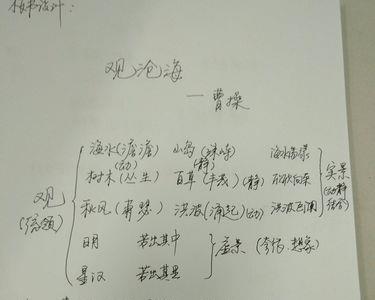 板书设计：
观沧海
——曹操
海水(澹澹) 山岛(竦峙) 海水荡漾
(动) (静)
观 树木(丛生) 百草(丰茂)(静) 实景
(统领) 秋风(萧瑟) 洪波(涌起)(动) 洪波 (动静结合)
日月 若出其中 虚景(夸张、想象)
星汉 若出其里